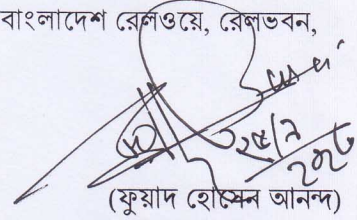 বাংলাদেশ রেলওয়ে, রেলভবন,
(ফুয়াদ হোসেন আনন্দ)